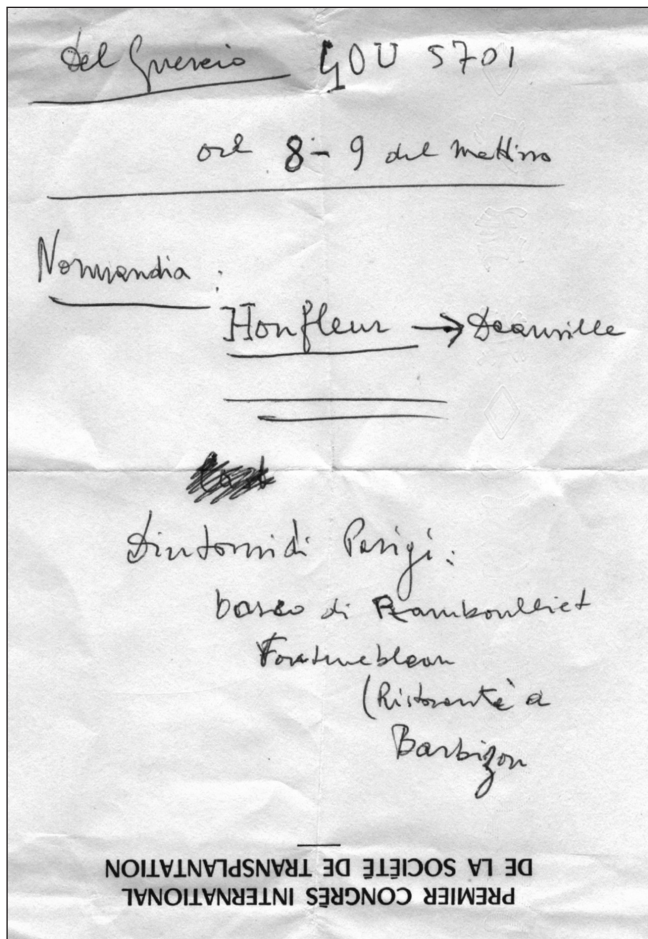 Del Guercio GOU 5701
ore 8-9 del mattino
Normandia:
Honfleur → Deauville
Dintorni di Parigi:
bosco di Ramboulliet
Fontainebleau
(Ristorante a
Barbizon
PREMIER CONGRÈS INTERNATIONAL
DE LA SOCIÉTÉ DE TRANSPLANTATION